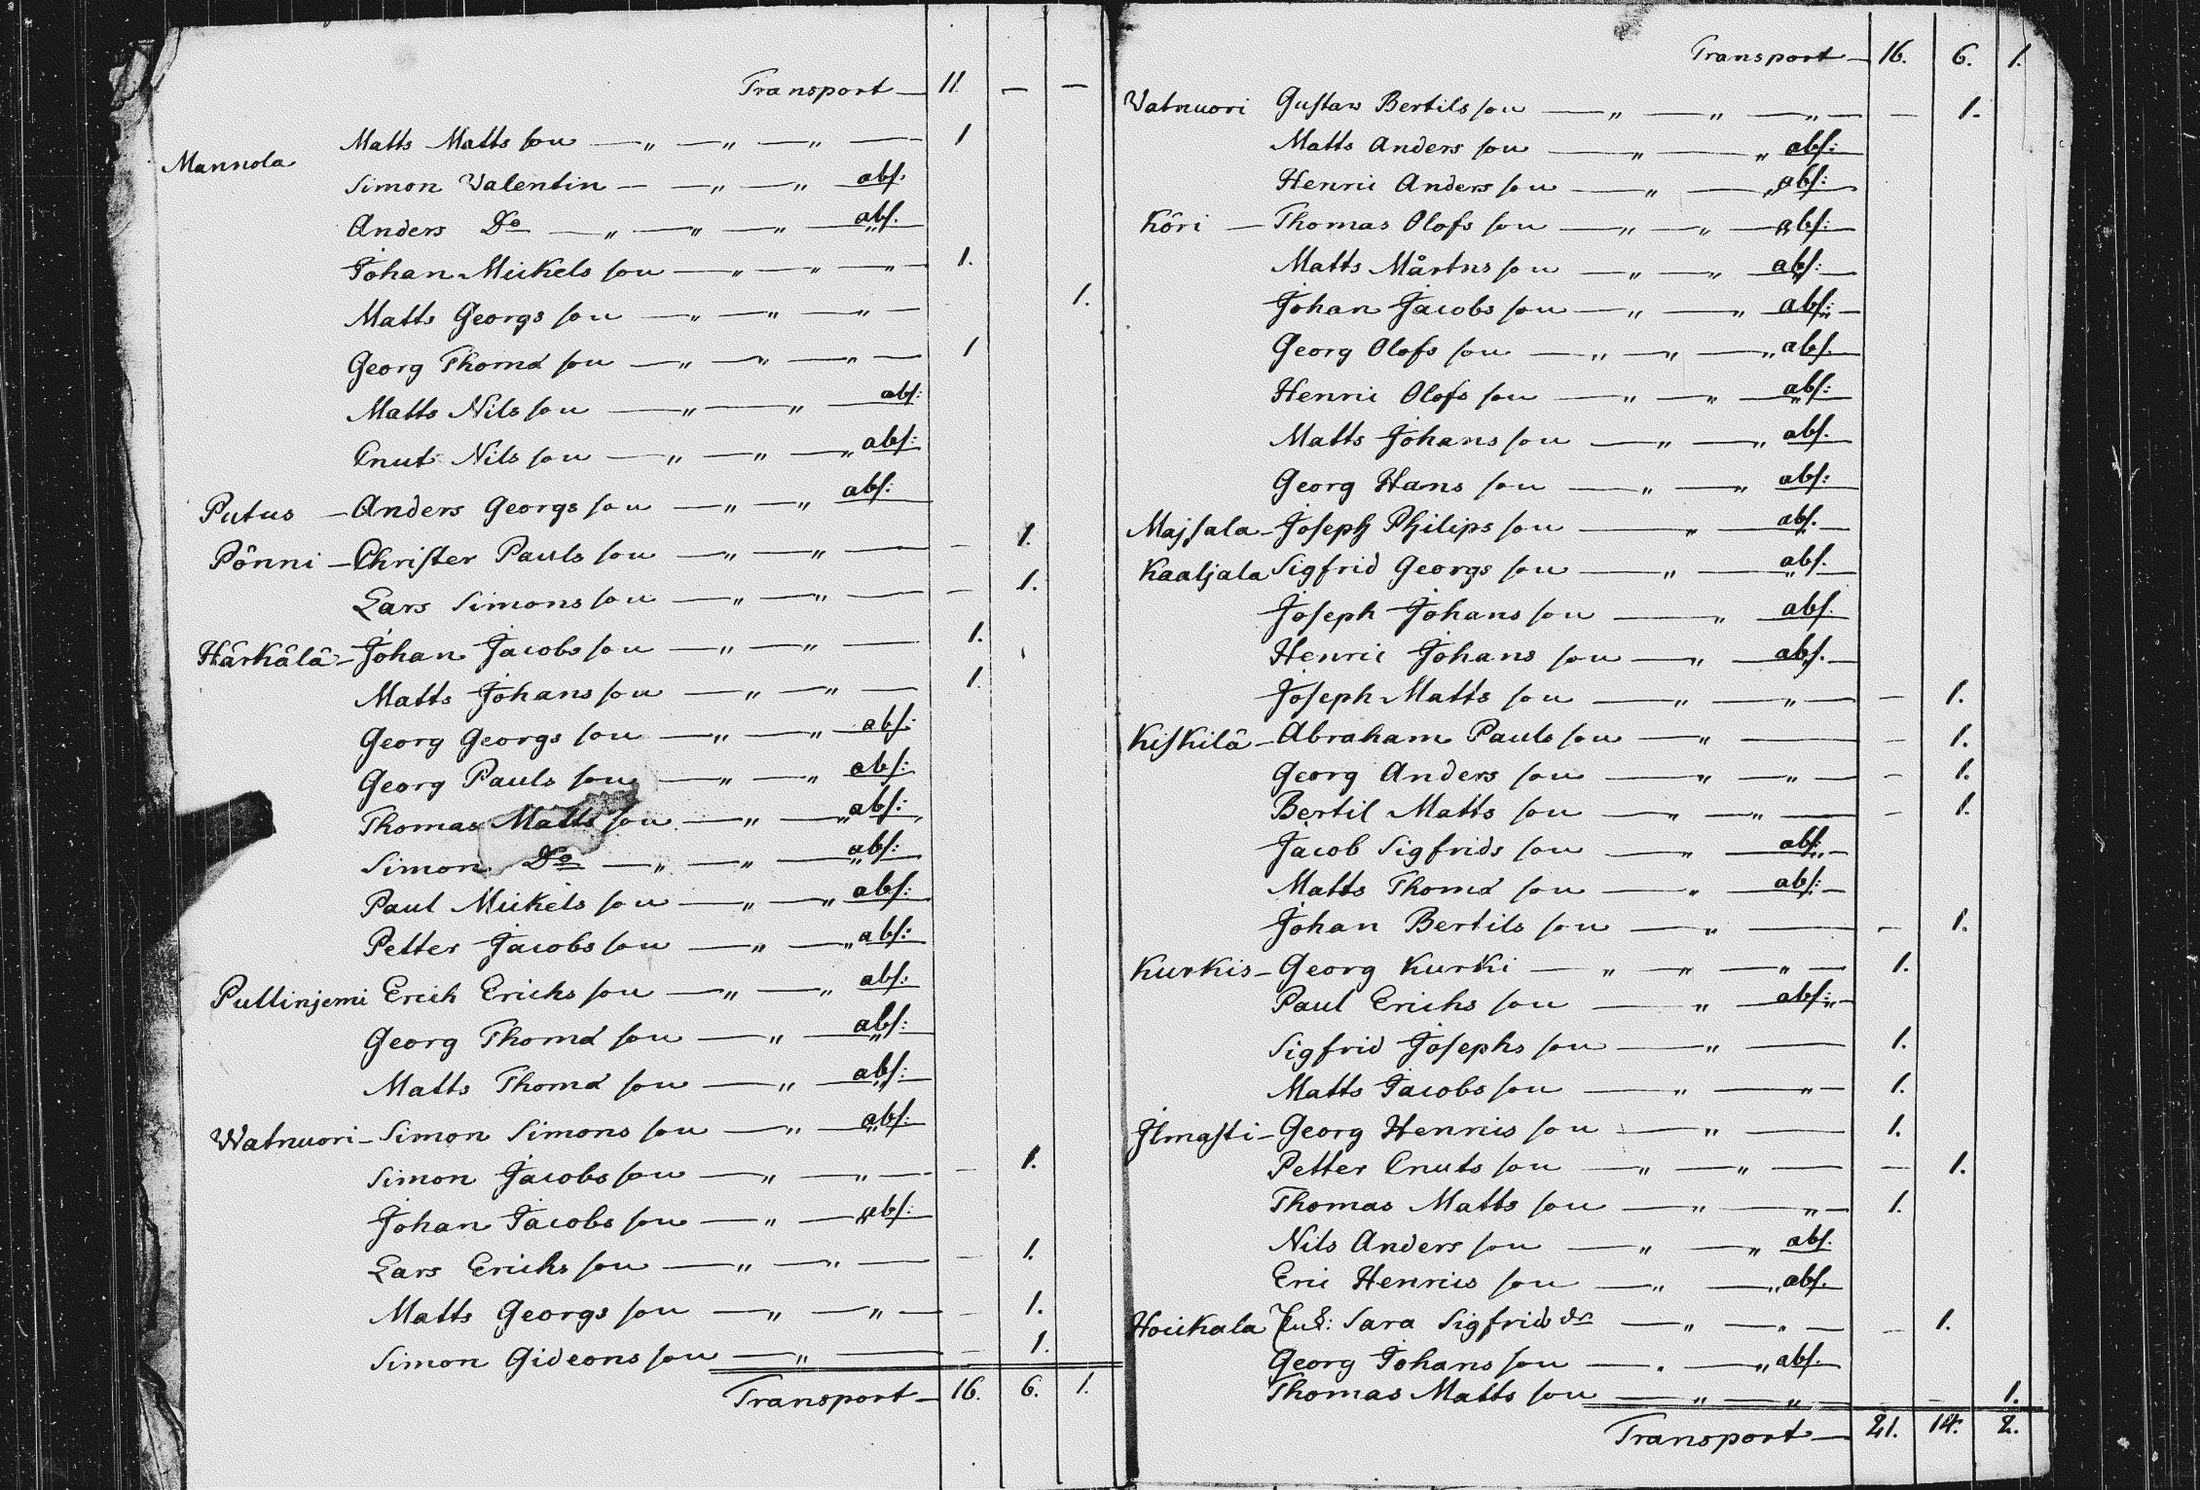 Transport — 11 — —
Matts Matts ſon — „ — „ — „ — 1
Mannola
Simon Valentin — — „ — „ abſ.
Anders Do — „ — „ — „ — abſ.
Johan Mickels ſon — „ — „ — „ — 1.
Matts Georgs ſon — „ — „ — „ — 1.
Georg Thomæ ſon — „ — „ — „ — 1
Matts Nils ſon — „ — „ — abſ:
Cnut Nils ſon — „ — „ — „ abſ:
Putus — Anders Georgs ſon — „ — „ abſ:
Pönni — Chriſter Pauls ſon — „ — „ — — 1.
Lars Simons ſon — „ — „ — — 1.
Härkälä — Johan Jacobs ſon — „ — „ — 1.
Matts Johans ſon — „ — „ — 1.
Georg Georgs ſon — „ — „ abſ:
Georg Pauls ſon — „ — „ abſ:
Thomas Matts ſon — „ — „ abſ:
Simon Do — „ — „ — abſ:
Paul Mickels ſon — „ — „ abſ:
Petter Jacobs ſon — „ — „ abſ:
Pullinjemi Erich Erichs ſon — „ — „ abſ:
Georg Thomæ ſon — „ — abſ:
Matts Thomæ ſon — „ — abſ:
Watnuori — Simon Simons ſon — „ — abſ:
Simon Jacobs ſon — „ — „ — — 1.
Johan Jacobs ſon — „ — „ abſ:
Lars Erichs ſon — „ — „ — — 1.
Matts Georgs ſon — „ — „ — — 1.
Simon Gideons ſon — „ — — 1.
Transport — 16. 6. 1.
Transport — 16. 6. 1.
Vatnuori Guſtaw Bertils ſon — „ — „ — „ — — 1.
Matts Anders ſon — „ — „ abſ:
Henric Anders ſon — „ — „ abſ:
Köri — Thomas Olofs ſon — „ — „ — abſ:
Matts Mårtns ſon — „ — „ abſ:
Johan Jacobs ſon — „ — „ abſ: —
Georg Olofs ſon — „ — „ — „ abſ.
Henric Olofs ſon — „ — „ abſ:
Matts Johans ſon — „ — „ abſ.
Georg Hans ſon — „ — „ abſ:
Majſala — Joſeph Philips ſon — „ abſ. —
Kaaljala Sigfrid Georgs ſon — „ — abſ.
Joſeph Johans ſon — „ abſ.
Henric Johans ſon — „ — abſ. —
Joſeph Matts ſon — „ — „ — — 1.
Kiſkilä — Abraham Pauls ſon — „ — — 1.
Georg Anders ſon — „ — „ — — 1.
Bertil Matts ſon — „ — „ — — 1.
Jacob Sigfrids ſon — „ — abſ: —
Matts Thomæ ſon — „ abſ: —
Johan Bertils ſon — „ — — 1.
Kurkis — Georg Kurki — „ — „ — „ — 1.
Paul Erichs ſon — „ — abſ: „ —
Sigfrid Joſephs ſon — „ — 1.
Matts Jacobs ſon — „ — „ — 1.
Ilmaſti — Georg Henrics ſon — „ — 1.
Petter Cnuts ſon — „ — „ — — 1.
Thomas Matts ſon — „ — „ — 1.
Nils Anders ſon — „ — „ abſ.
Eric Henrics ſon — „ — „ abſ.
Houkala Sara Sigfrids dr — „ — „ — — 1.
Georg Johans ſon — „ — „ abſ.
Thomas Matts ſon — „ — „ — — 1.
Transport — 21. 14. 2.